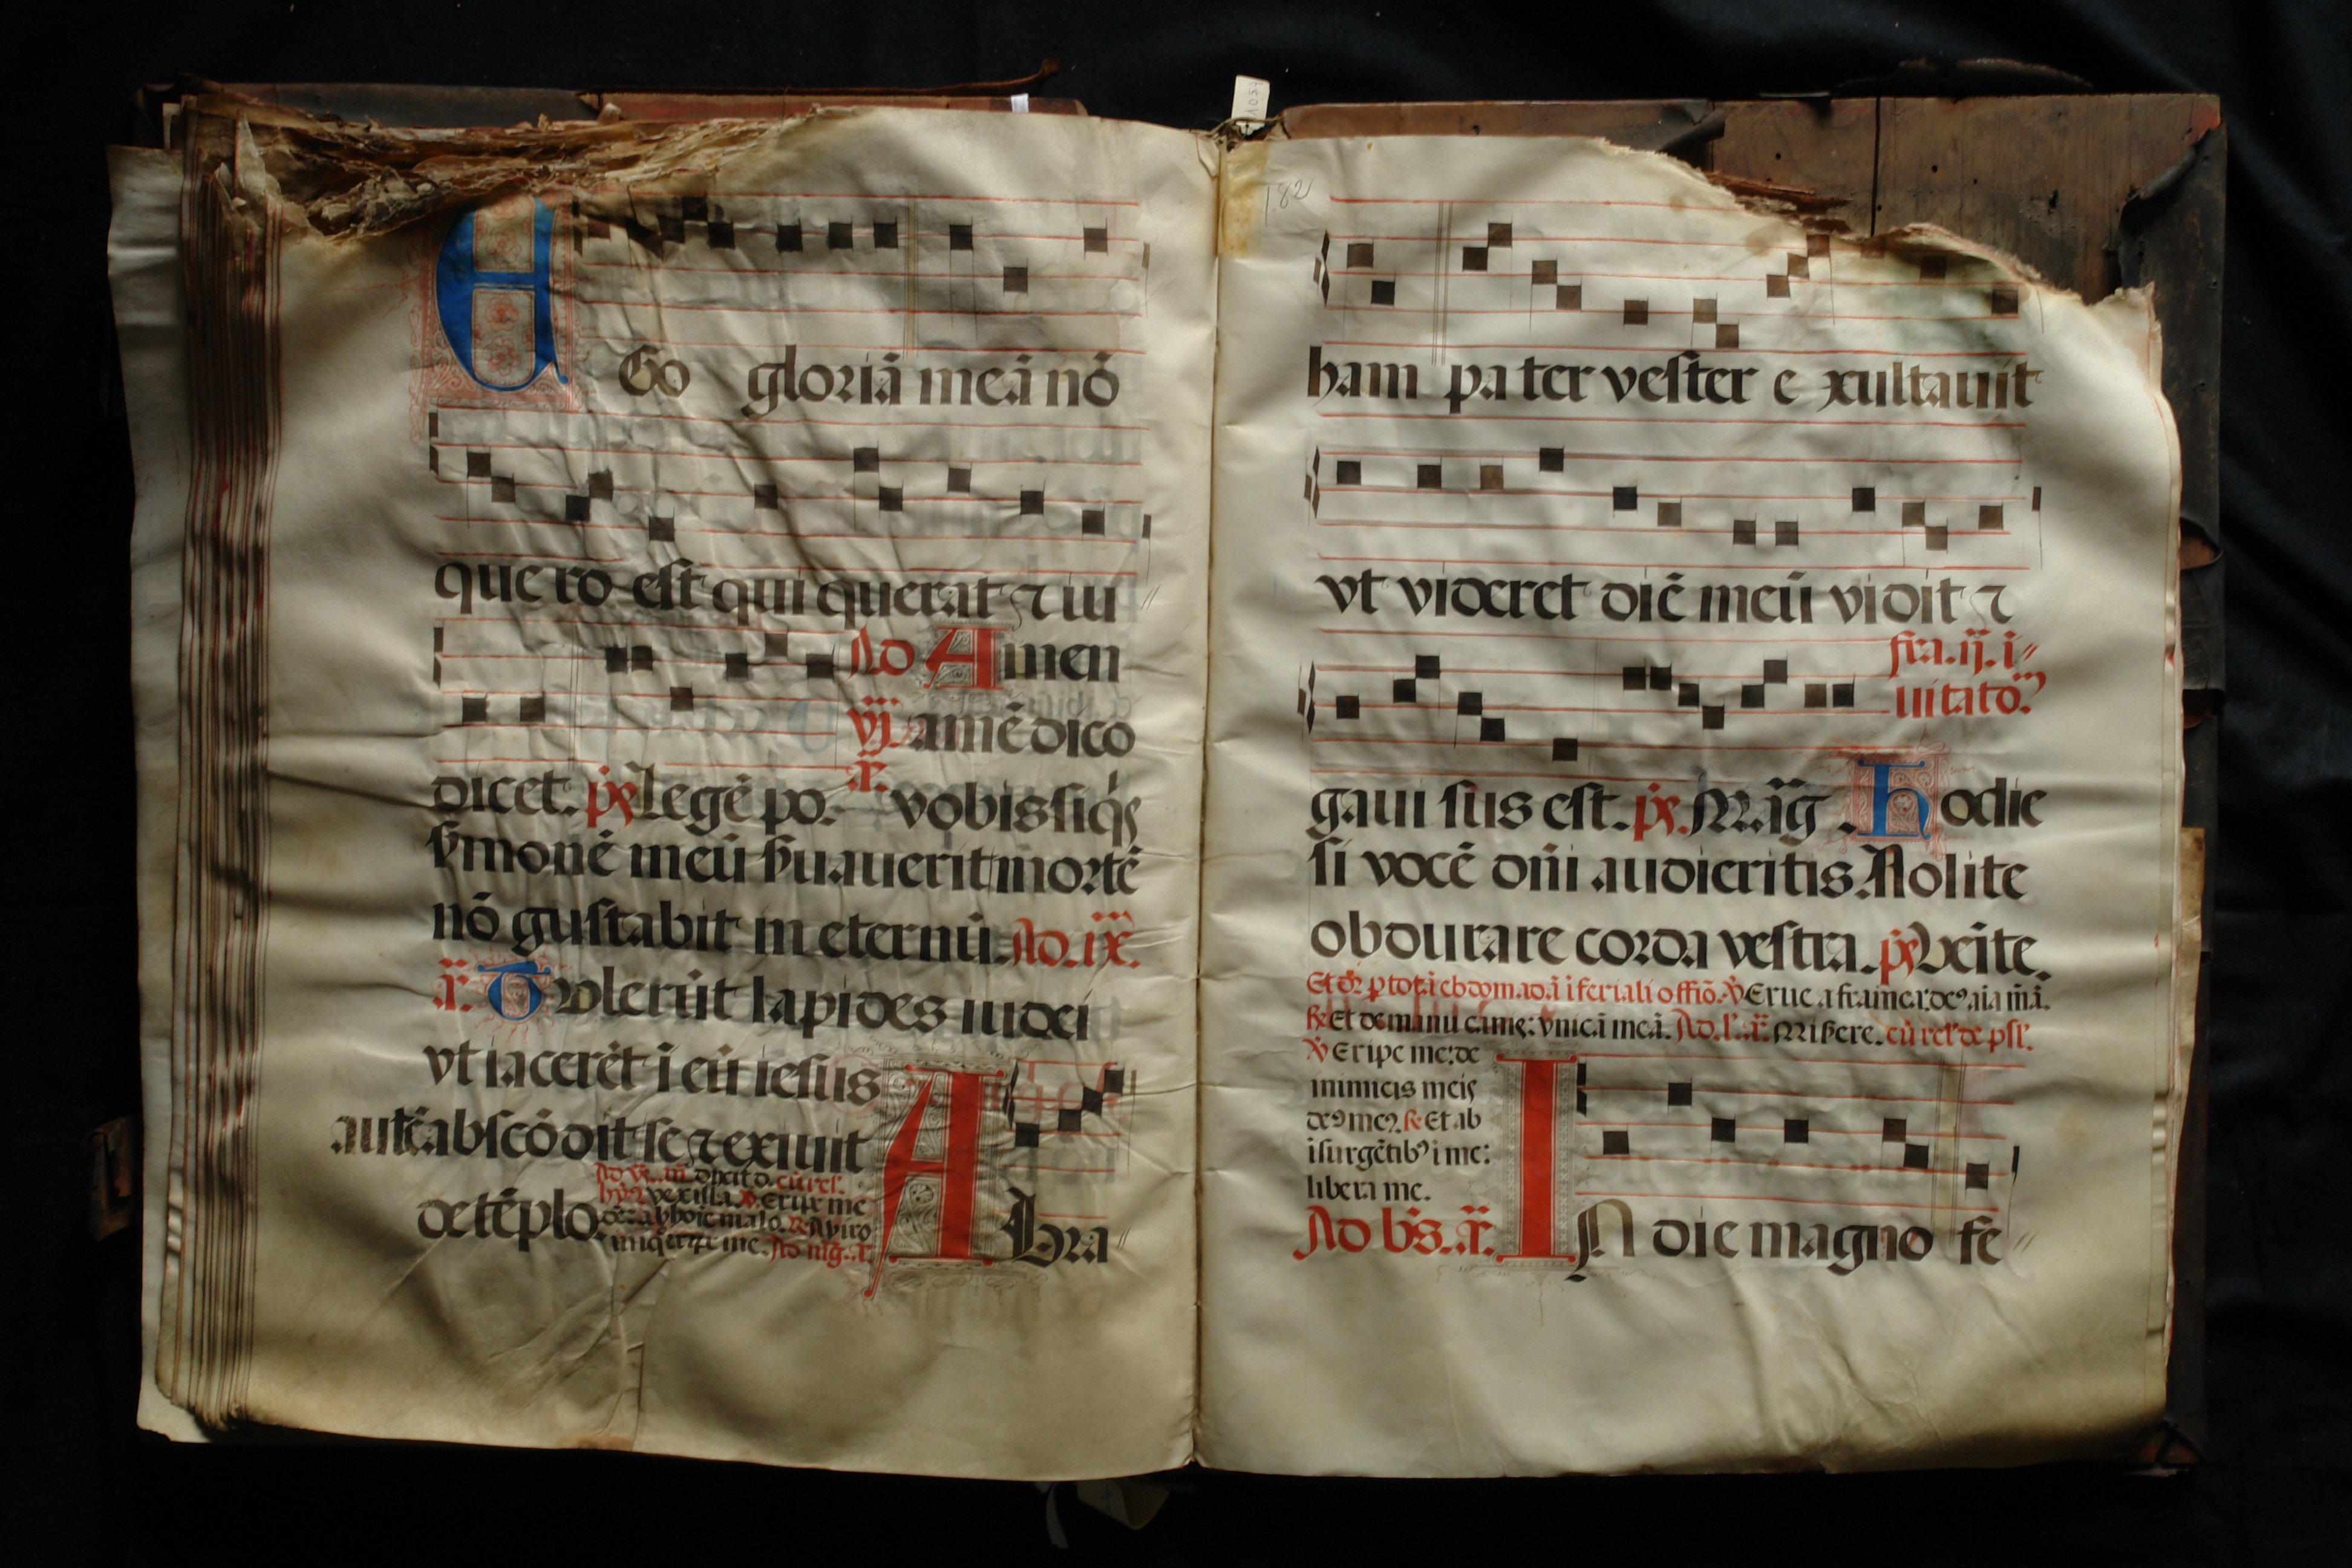 EGo gloriā meā nō
que ro est qui querat ⁊ iu
Ad Amen
vj. amē dico
dicet. ps Legē po. a. vobis siq̄s
s̄monē meū s̄uauerit mortē
nō gustabit in eternū. Ad. ix.
a. Tvlerūt lapides iudei
vt iacerēt ī eū iesus
autē abscōdit se ⁊ exiuit
de tēplo.
Abra
182
ham pa ter vester e xultauit
vt videret diē meū vidit ⁊
fra. ij. i
uitato.
gaui sus est. ps. Maḡ. Hodie
si vocē dn̄i audieritis. Nolite
obdurare corda vestra. ps Veīte.
℣ Erue a framea: de9 aīa m̄ā.
Et de manu canis: vnicā meā. Ad. l. a. Misere. cū rel' de ps̄.
℣ Eripe me: de
inimicis meis
de9 me9. Et ab
īsurgētib9 ī me:
libera me.
Ad b's. a. IN die magno fe